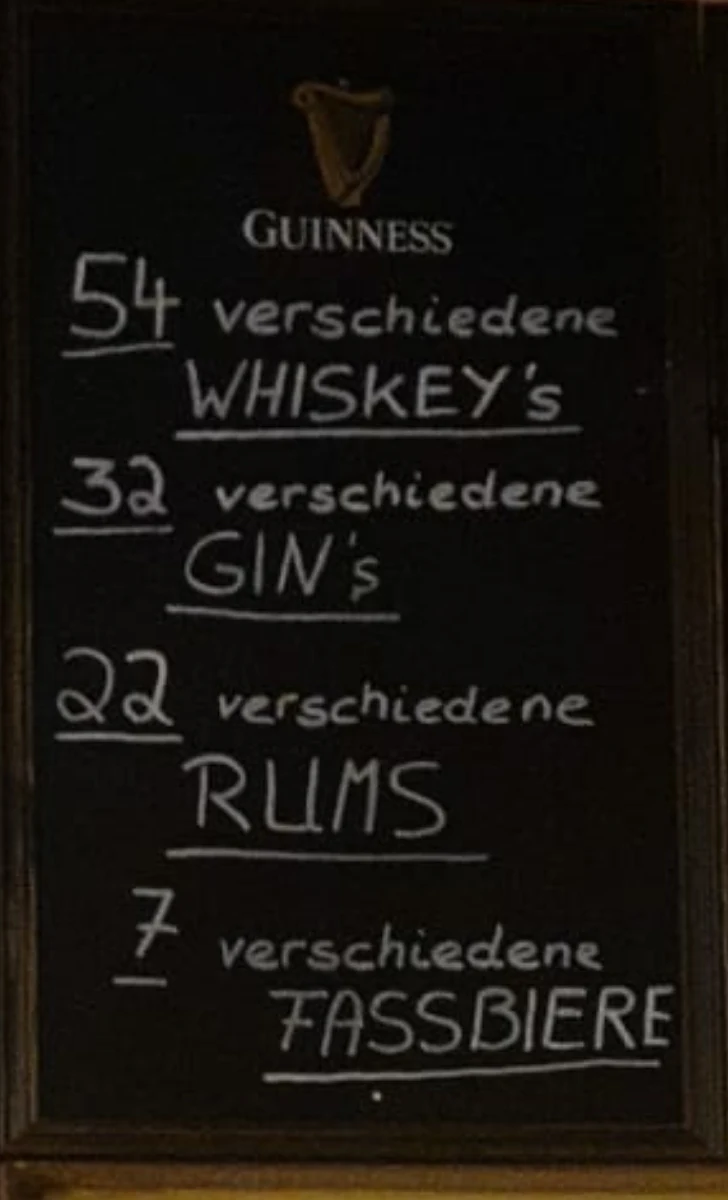 GUINNESS
54 verschiedene
WHISKEY's
32 verschiedene
GIN's
22 verschiedene
RUMS
7 verschiedene
FASSBIERE